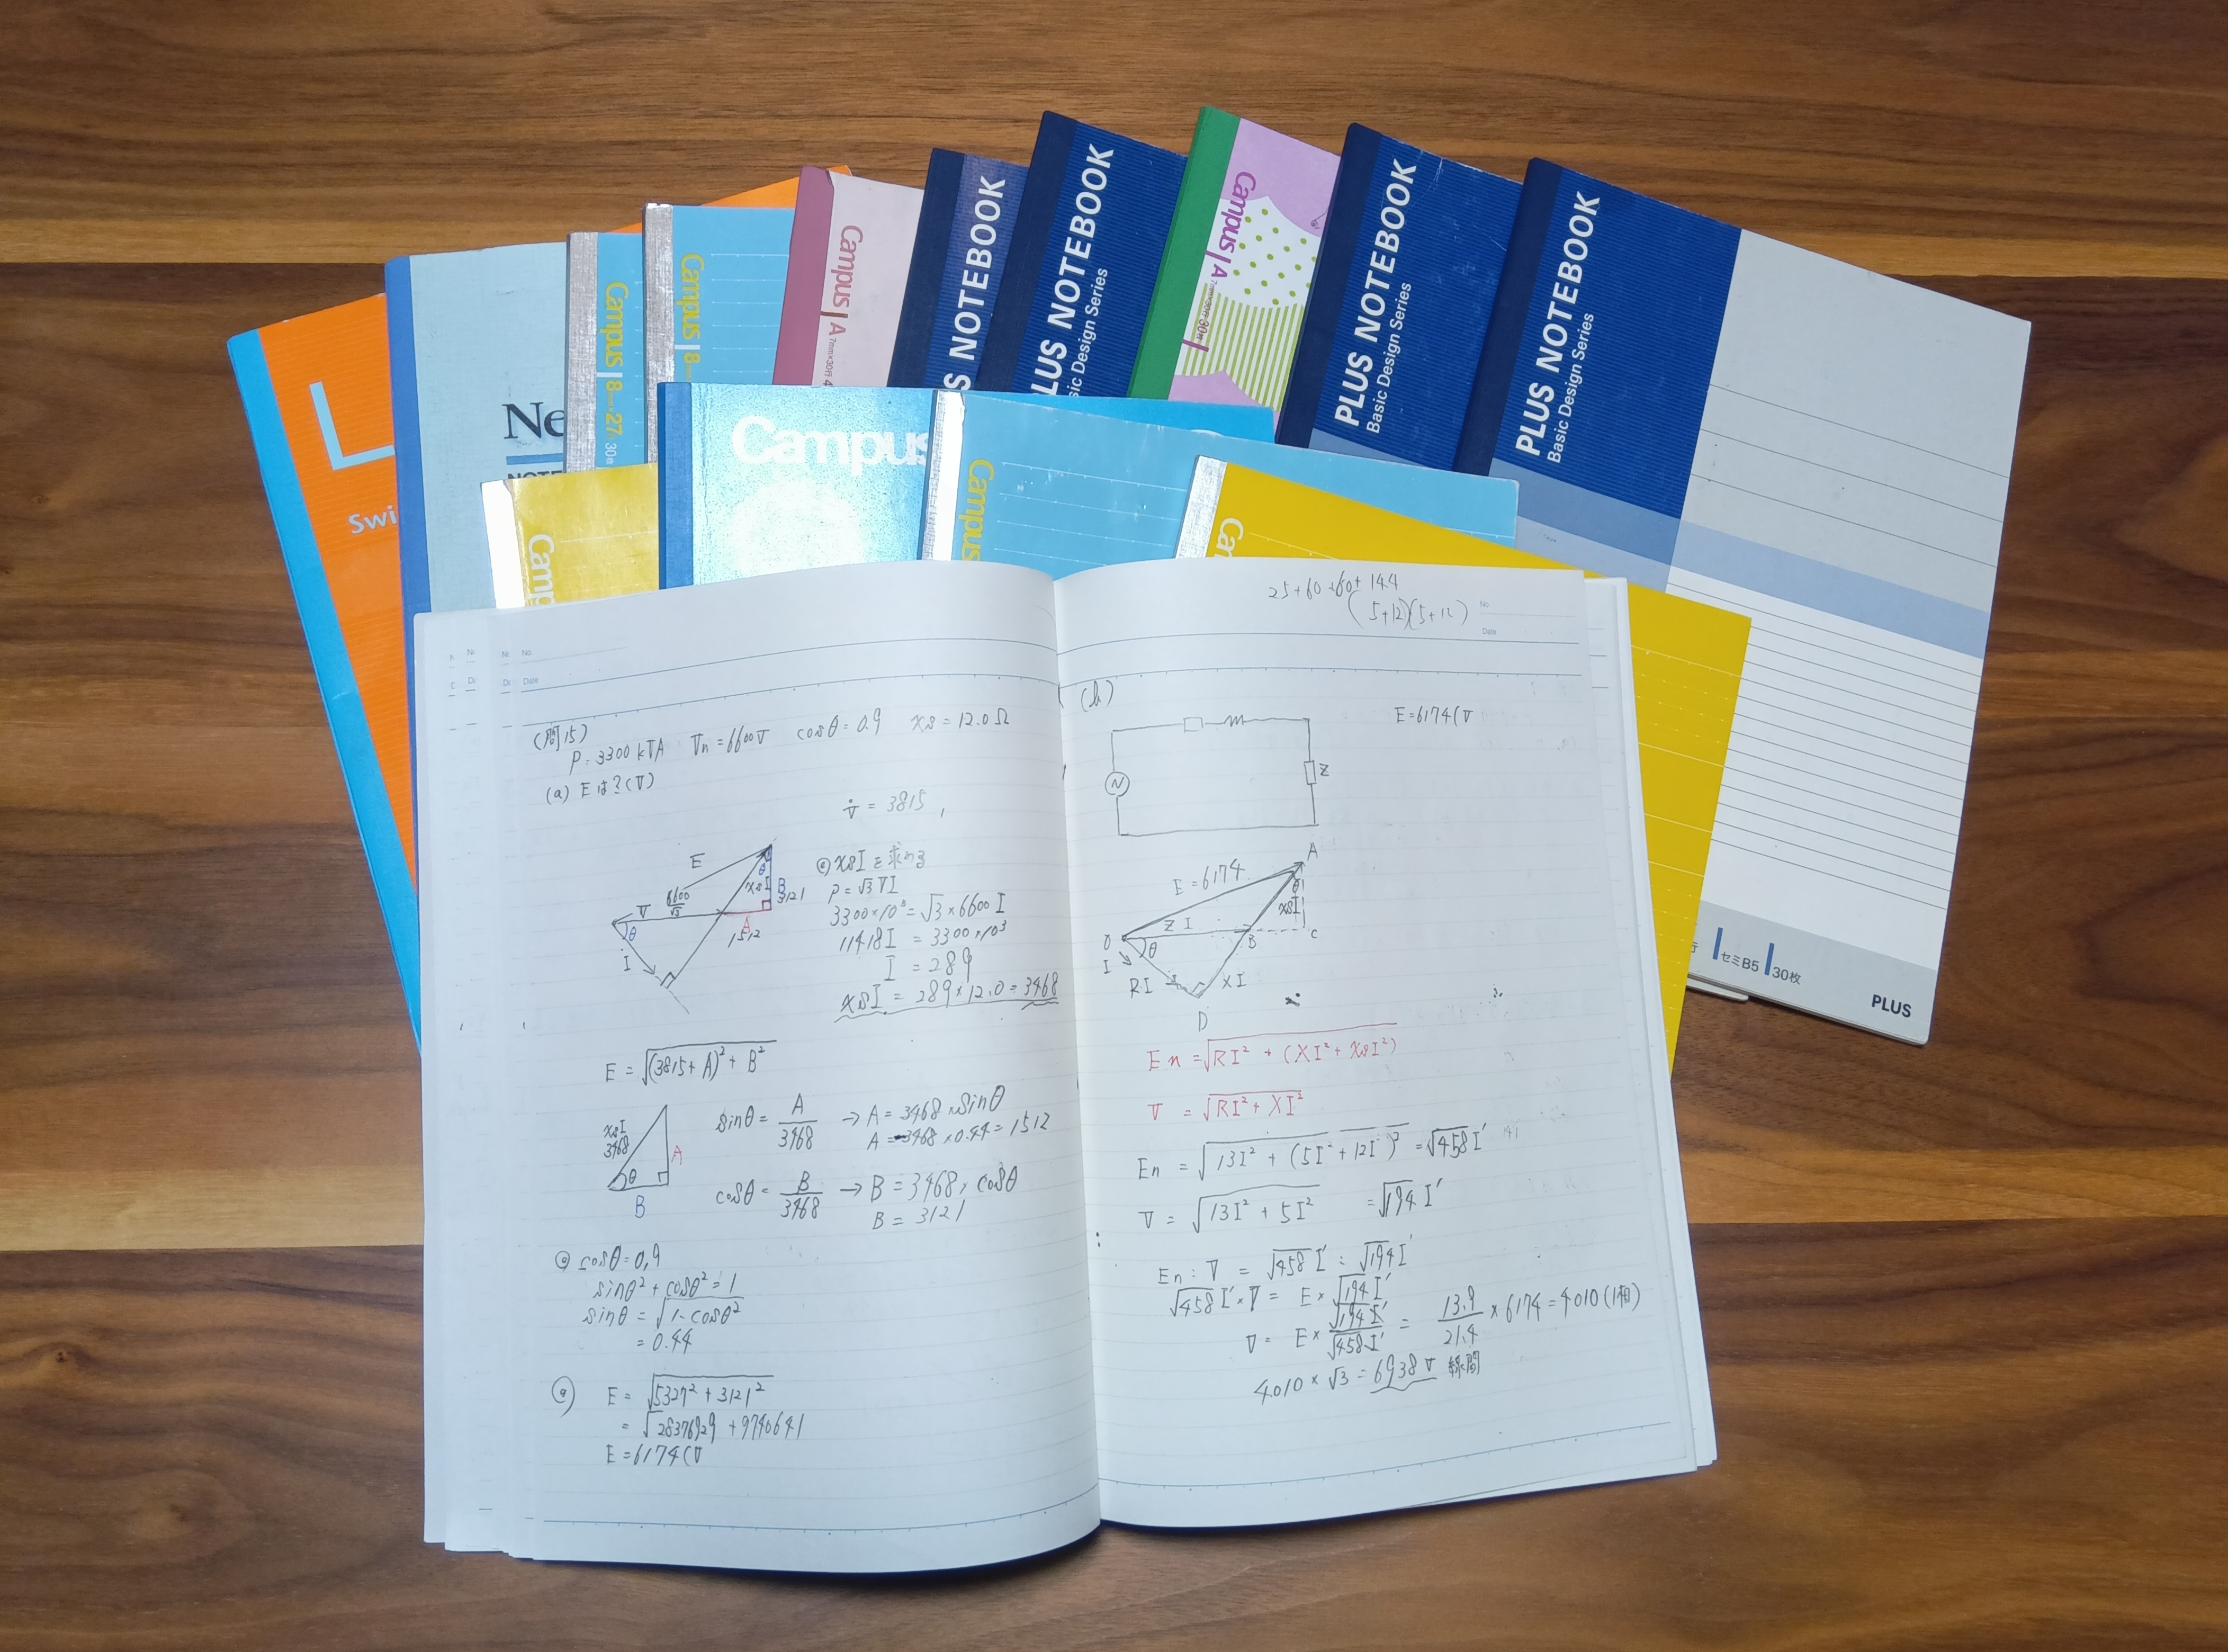 Campus | A 7mm×30行 4
NOTEBOOK
PLUS NOTEBOOK
Basic Design Series
Campus | A 7mm×30行 30枚
PLUS NOTEBOOK
Basic Design Series
PLUS NOTEBOOK
Basic Design Series
Campus | 8 mm×27 30枚
Campus | 8
L
Swi
Ne
NOTE
Campus
Campus
Camp
Ca
セミB5 30枚
PLUS
No.
Date
(問15)
P=3300kVA Vn=6600V cosθ=0.9 xs=12.0Ω
(a) Eは?(V)
V̇ = 3815,
E
V 6600/√3
θ
xsI
B 3121
A
1512
θ
I
@ xsIを求める
P=√3VI
3300×10³=√3×6600I
11418I = 3300×10³
I = 289
xsI = 289×12.0=3468
E = √(3815+A)²+B²
xsI
3468
A
θ
B
sinθ= A/3468 → A=3468×sinθ
A=3468×0.44=1512
cosθ= B/3468 → B=3468×cosθ
B=3121
@ cosθ=0.9
sinθ²+cosθ²=1
sinθ=√1-cosθ²
=0.44
@ E = √5327²+3121²
= √28376929+9740641
E=6174(V
25+60+60+144
(5+12)(5+12)
No
Date
(b)
E=6174(V
Z
E=6174
A
θ
xsI
ZI
O
θ
B
C
I
RI
XI
D
En=√RI²+(XI²+xsI²)
V = √RI²+XI²
En = √13I²+(5I²+12I)² =√458I'
V = √13I²+5I² =√194I'
En:V = √458I':√194I'
√458I'×V = E×√194I'
V= E×√194I'/√458I' = 13.9/21.4×6174=4010(1相)
4010×√3=6938V 線間